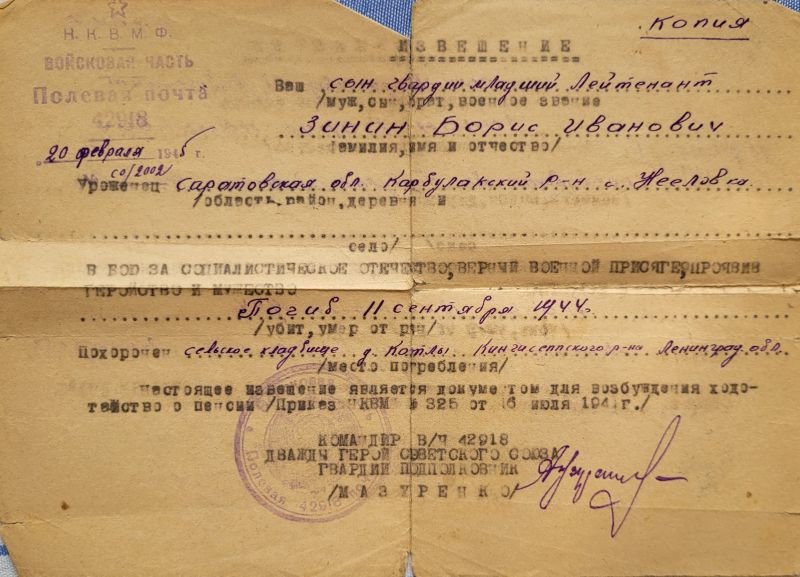 Копия
Н.К.В.М.Ф.
ВОЙСКОВАЯ ЧАСТЬ
Полевая почта
42918
20 февраля 1945 г.
со/2002
ИЗВЕШЕНИЕ
Ваш сын гвардии младший Лейтенант
/муж, сын, брат, военное звание
Зинин Борис Иванович
/фамилия, имя и отчество/
Уроженец Саратовская обл. Карбулакский р-н с. Нееловка
/область, район, деревня и
село/
В БОЮ ЗА СОЦИАЛИСТИЧЕСКОЕ ОТЕЧЕСТВО, ВЕРНЫЙ ВОЕННОЙ ПРИСЯГЕ, ПРОЯВИВ
ГЕРОЙСТВО И МУЖЕСТВО
Погиб 11 сентября 1944г.
/убит, умер от ран/
Похоронен сельское кладбище д. Котлы Кингисеппского р-на Ленинград. обл.
/место погребления/
настоящее извешение является докуме том для возбуждения ходо-
тайство о пенсии /Приказ НКВМ № 325 от 16 июля 1941г./
КОМАНДИР В/Ч 42918
ДВАЖДЫ ГЕРОЙ СОВЕТСКОГО СОЮЗА
ГВАРДИИ ПОДПОЛКОВНИК
/МАЗУРЕНКО/
Полевая 42918